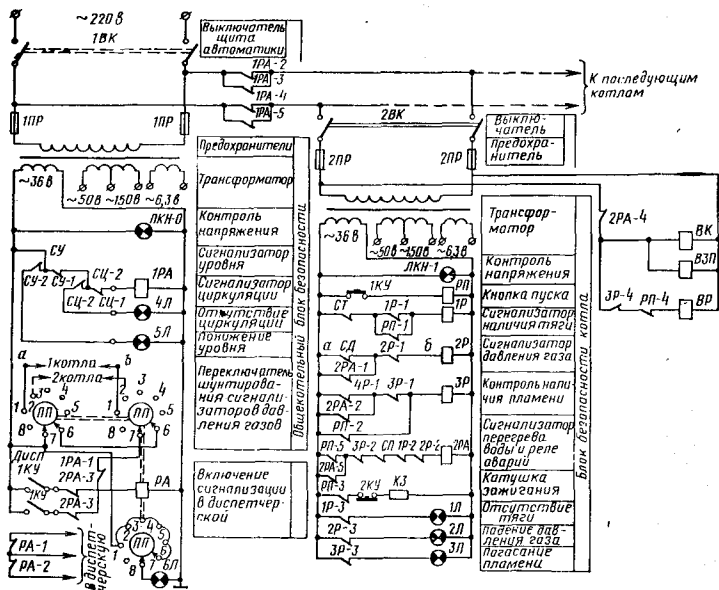 ~220 в
1ВК
Выключатель
щита
автоматики
1РА-2
1РА-3
1РА-4
1РА-5
К последующим
котлам
1ПР
1ПР
2ВК
2ПР
2ПР
Выклю-
чатель
Предохра-
нитель
Предохранители
Трансформатор
Контроль
напряжения
Сигнализатор
уровня
Сигнализатор
циркуляции
Отсутствие
циркуляции
Понижение
уровня
Переключатель
шунтирова-
ния сигнали-
заторов дав-
ления газов
Включение
сигнализации
в диспетчер-
ской
Общекотельный блок безопасности
~36в
~50в
~150в
~6,3в
ЛКН-0
СУ
СУ-2
СУ-1
СЦ-2
СЦ-2
СЦ-1
1РА
4Л
5Л
а
б
1 котла
2 котла
1 2 3 4 5 6 7 8
ПП
1 2 3 4 5 6 7 8
ПП
Дисп
1КУ
1КУ
1РА-1
2РА-3
2РА-3
РА
РА-1
РА-2
в диспет-
черскую
1 2 3 4 5 6 7 8
ПП
6Л
~36в
~50в
~150в
~6,3в
ЛКН-1
1КУ
РП
СТ
1Р-1
РП-1
1Р
а
СД
2Р-1
б
2Р
2РА-1
4Р-1
3Р-1
3Р
2РА-2
РП-2
РП-5
3Р-2
СП
1Р-2
2Р-2
2РА
2РА-5
РП-3
2КУ
КЗ
1Р-3
1Л
2Р-3
2Л
3Р-3
3Л
Трансфор-
матор
Контроль
напряжения
Кнопка пуска
Сигнализатор
наличия тяги
Сигнализатор
давления газа
Контроль нали-
чия пламени
Сигнализатор
перегрева
воды и реле
аварий
Катушка
зажигания
Отсутствие
тяги
Падение дав-
ления газа
Погасание
пламени
Блок безопасности котла
2РА-4
ВК
ВЗП
3Р-4
РП-4
ВР